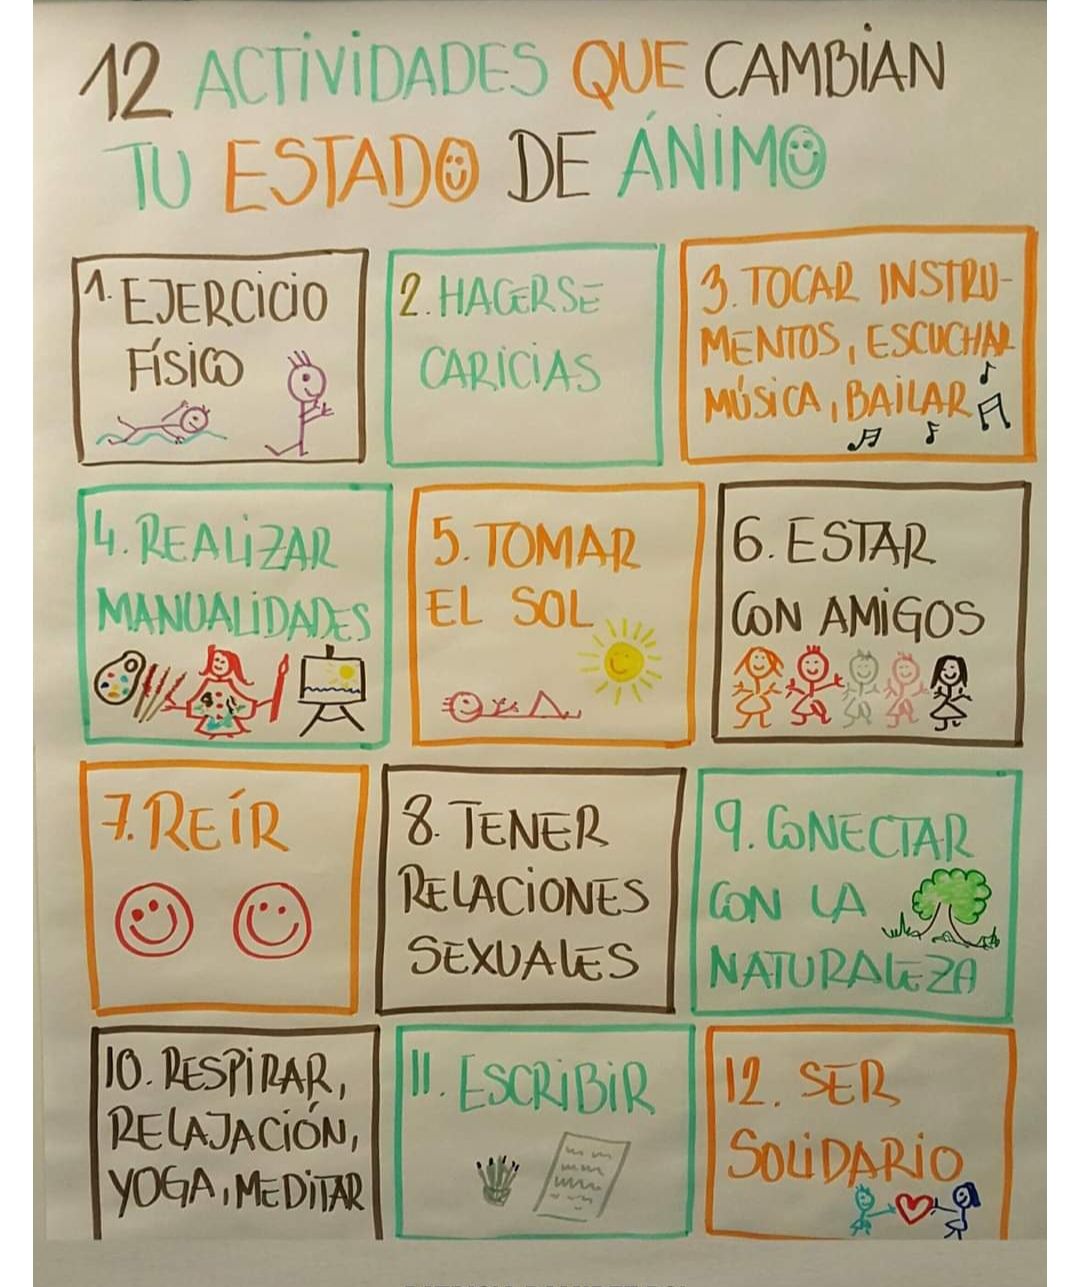 12 ACTIVIDADES QUE CAMBIAN
TU ESTADO DE ÁNIMO
1. EJERCICIO
FÍSICO
2. HACERSE
CARICIAS
3. TOCAR INSTRU-
MENTOS, ESCUCHAR
MÚSICA, BAILAR
4. REALIZAR
MANUALIDADES
5. TOMAR
EL SOL
6. ESTAR
CON AMIGOS
7. REÍR
8. TENER
RELACIONES
SEXUALES
9. CONECTAR
CON LA
NATURALEZA
10. RESPIRAR,
RELAJACIÓN,
YOGA, MEDITAR
11. ESCRIBIR
12. SER
SOLIDARIO